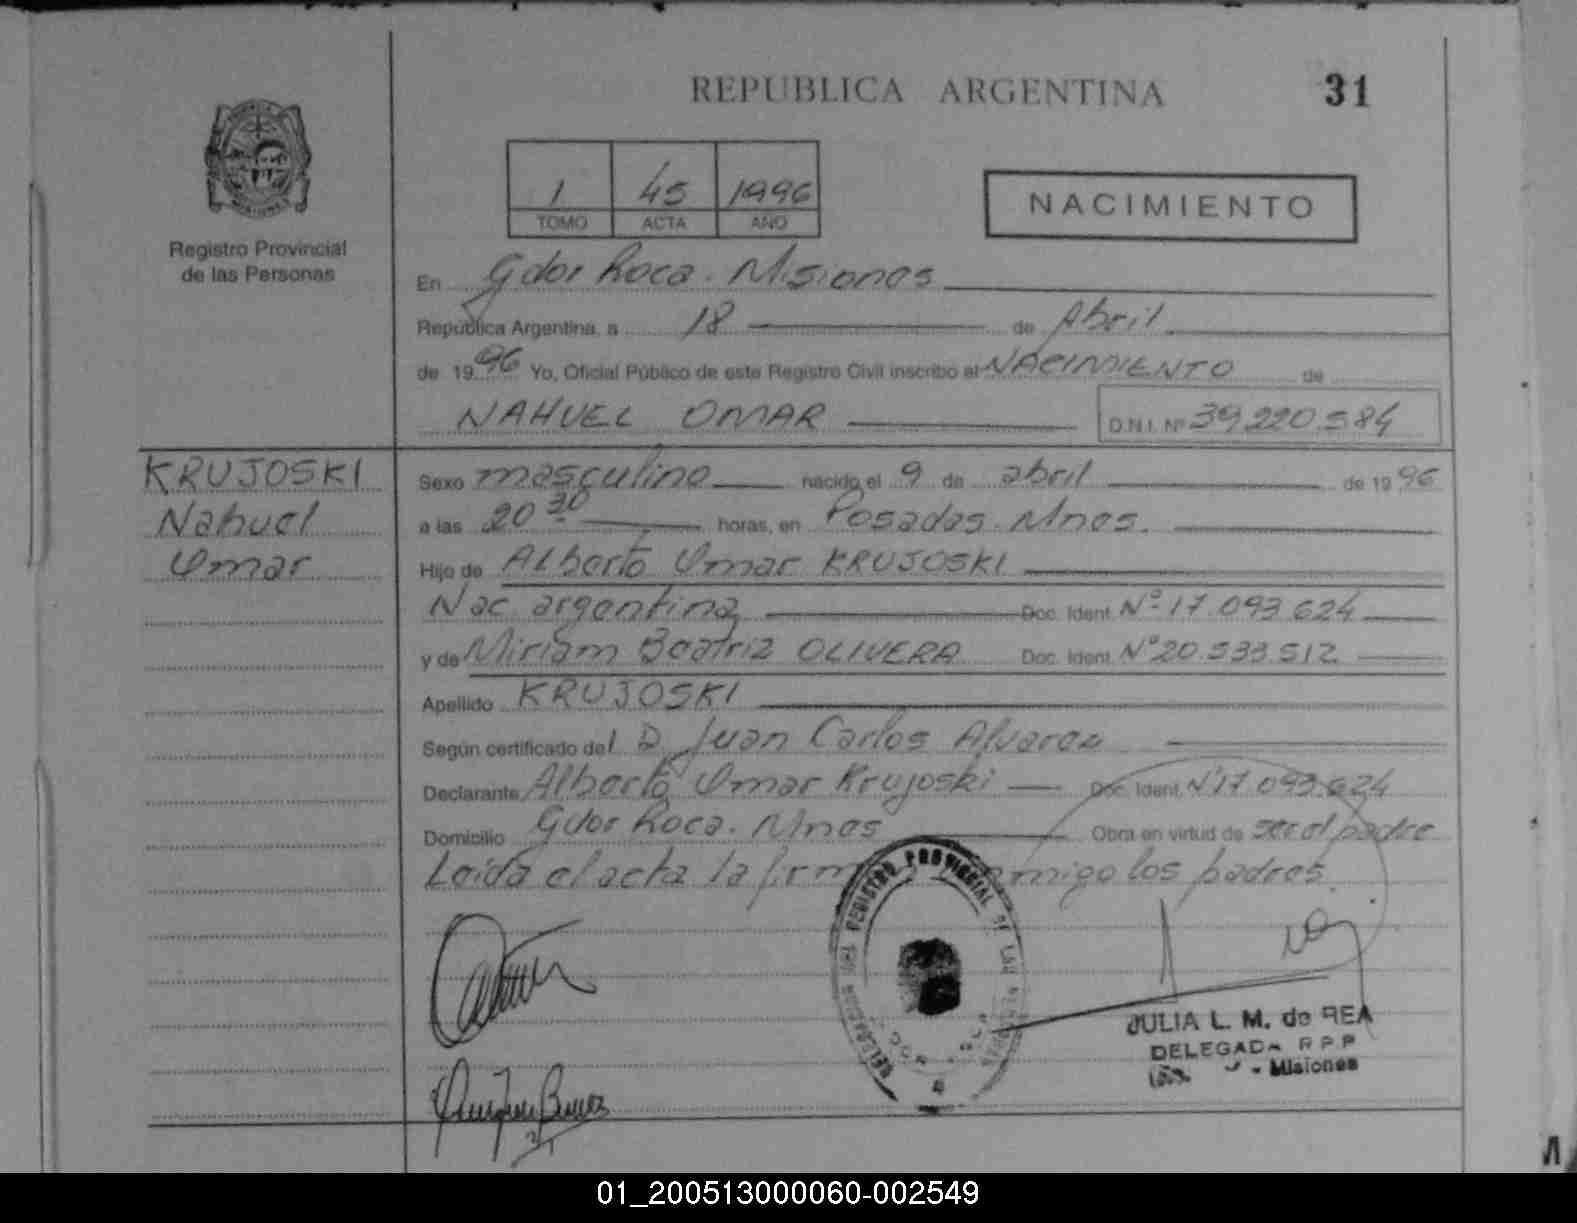 REPUBLICA ARGENTINA
31
Registro Provincial
de las Personas
1 45 1996
TOMO ACTA AÑO
NACIMIENTO
En Gdor Roca. Misiones
República Argentina, a 18 de Abril
de 1996 Yo, Oficial Público de este Registro Civil inscribo el NACIMIENTO de
NAHUEL OMAR D.N.I. Nº 39.220.584
KRUJOSKI
Nahuel
Omar
Sexo masculino nacido el 9 de abril de 1996
a las 20 30 horas, en Posadas. Mnes.
Hijo de Alberto Omar KRUJOSKI
Nac. argentina Doc. Ident. Nº 17.093.624
y de Miriam Beatriz OLIVERA Doc. Ident. Nº 20.533.512
Apellido KRUJOSKI
Según certificado del D. Juan Carlos Alvarez
Declarante Alberto Omar Krujoski Doc. Ident. Nº 17.093.624
Domicilio Gdor Roca. Mnes Obra en virtud de ser el padre
Leida el acta la firm migo los padres.
REGISTRO PROVINCIAL DE LAS
JULIA L. M. de REA
DELEGADA R.P.P
Misiones
01_200513000060-002549